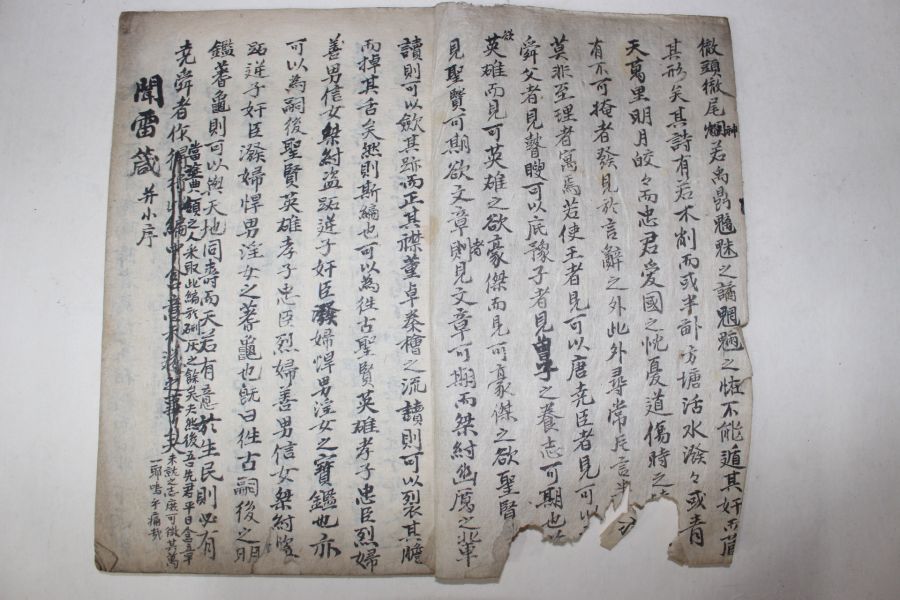 徹頭徹尾 若禹鼎魑魅之譎魍魎之怪不能遁其奸而眉
其形矣其詩有若木削而或半畝方塘活水潑々或青
天萬里明月皎々而忠君愛國之忱憂道傷時之
有不可掩者發見於言辭之外此外尋常片言
莫非至理者寓焉若使王者見可以唐堯臣者見可以
舜父者見瞽瞍可以底豫子者見曾子之養志可期也
英雄而見可英雄之欲豪傑而見可豪傑之欲聖賢
見聖賢可期欲文章者則見文章可期而桀紂幽厲之輩
讀則可以歛其跡而正其襟董卓秦檜之流讀則可以裂其膽
而掉其舌矣然則斯編也可以為徃古聖賢英雄孝子忠臣烈婦
善男信女桀紂盜跖逆子奸臣潑婦悍男淫女之寶鑑也亦
可以為嗣後聖賢英雄孝子忠臣烈婦善男信女桀紂盜
跖逆子奸臣潑婦悍男淫女之蓍龜也旣曰徃古嗣後之明
鑑蓍龜則可以與天地同壽而天若有意於生民則必有
堯舜者作
當
之人來取此編於刪灰之餘矣夫然後吾先君平日含
未就之志庶可徵其萬
一耶嗚乎痛哉
聞雷箴 并小序